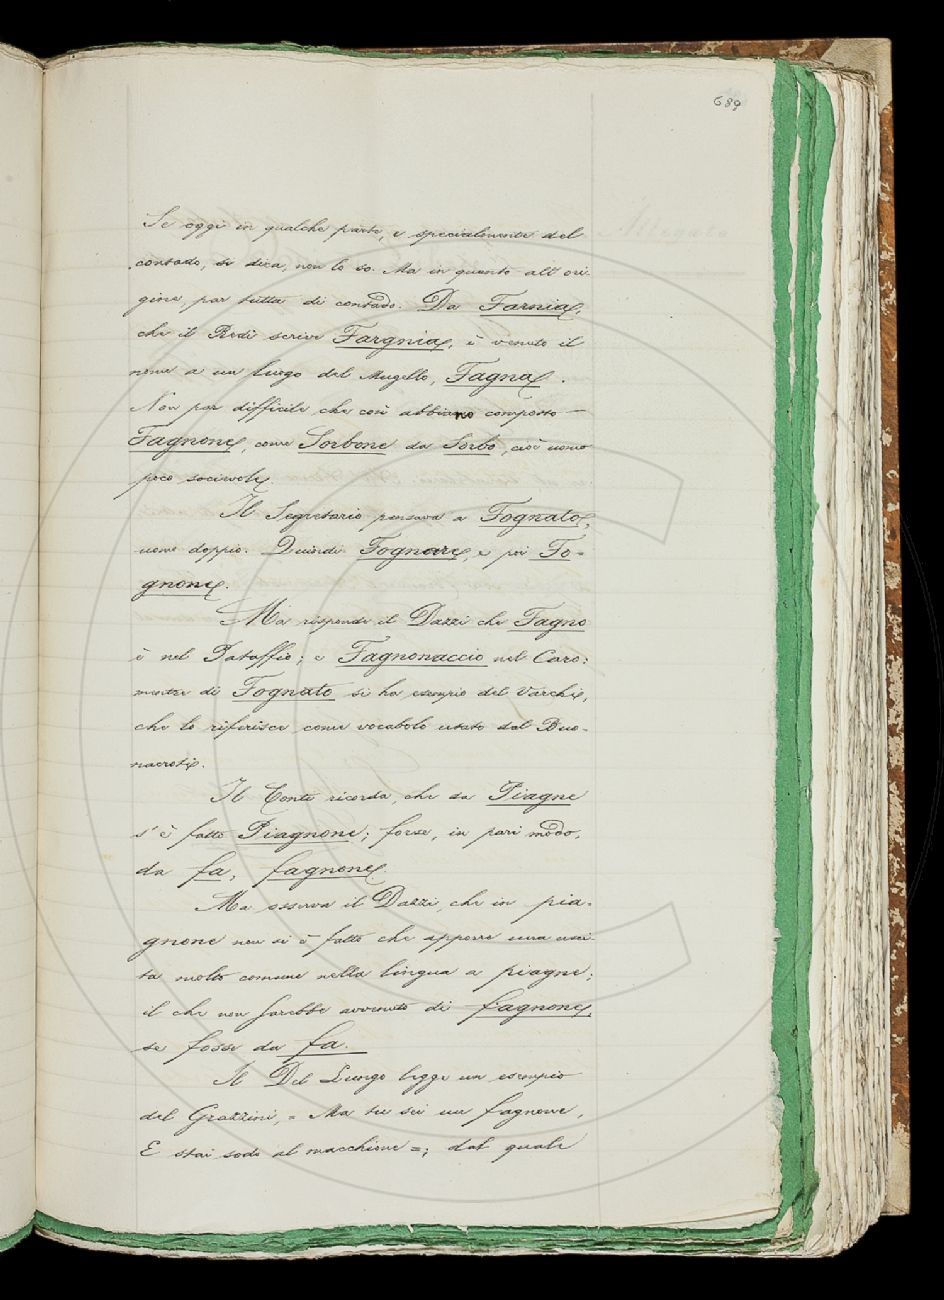 689
Se oggi in qualche parte, e specialmente del
contado, si dica, non lo so. Ma in quanto all'ori-
gine, par tutta di contado. Da Farnia,
che il Redi scrive Fargnia, è venuto il
nome a un luogo del Mugello, Fagna.
Non par difficile che così abbiano composto
Fagnone, come Sorbone da Sorbo, cioè uomo
poco socievole.
Il Segretario pensava a Fognato,
uomo doppio. Quindi Fognare, e poi Fo-
gnone.
Ma risponde il Dazzi che Fagno
è nel Pataffio; e Fagnonaccio nel Caro;
mentre di Fognato si ha esempio del Varchi,
che lo riferisce come vocabolo usato dal Buo-
narroti.
Il Conti ricorda, che da Piagne
s'è fatto Piagnone; forse, in pari modo,
da fa, fagnone.
Ma osserva il Dazzi, che in pia-
gnone non si è fatto che apporre una usci-
ta molto comune nella lingua a piagne;
il che non sarebbe avvenuto di fagnone,
se fosse da fa.
Il Del Lungo legge un esempio
del Grazzini, = Ma tu sei un fagnone,
E stai sodo al macchione =; dal quale